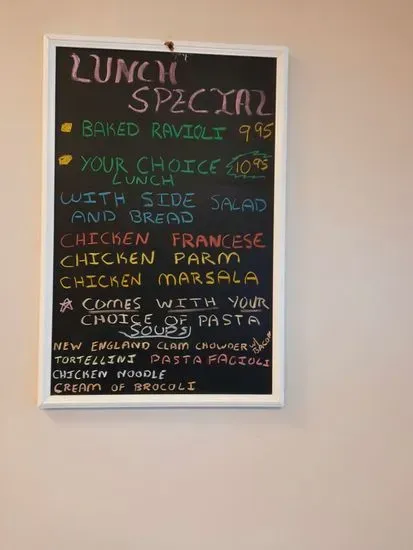 LUNCH
SPECIAL
BAKED RAVIOLI 9.95
YOUR CHOICE 10.95
LUNCH
WITH SIDE SALAD
AND BREAD
CHICKEN FRANCESE
CHICKEN PARM
CHICKEN MARSALA
☆ COMES WITH YOUR
CHOICE OF PASTA
SOUPS
NEW ENGLAND CLAM CHOWDER w/ BACON
TORTELLINI PASTA FAGIOLI
CHICKEN NOODLE
CREAM OF BROCOLI